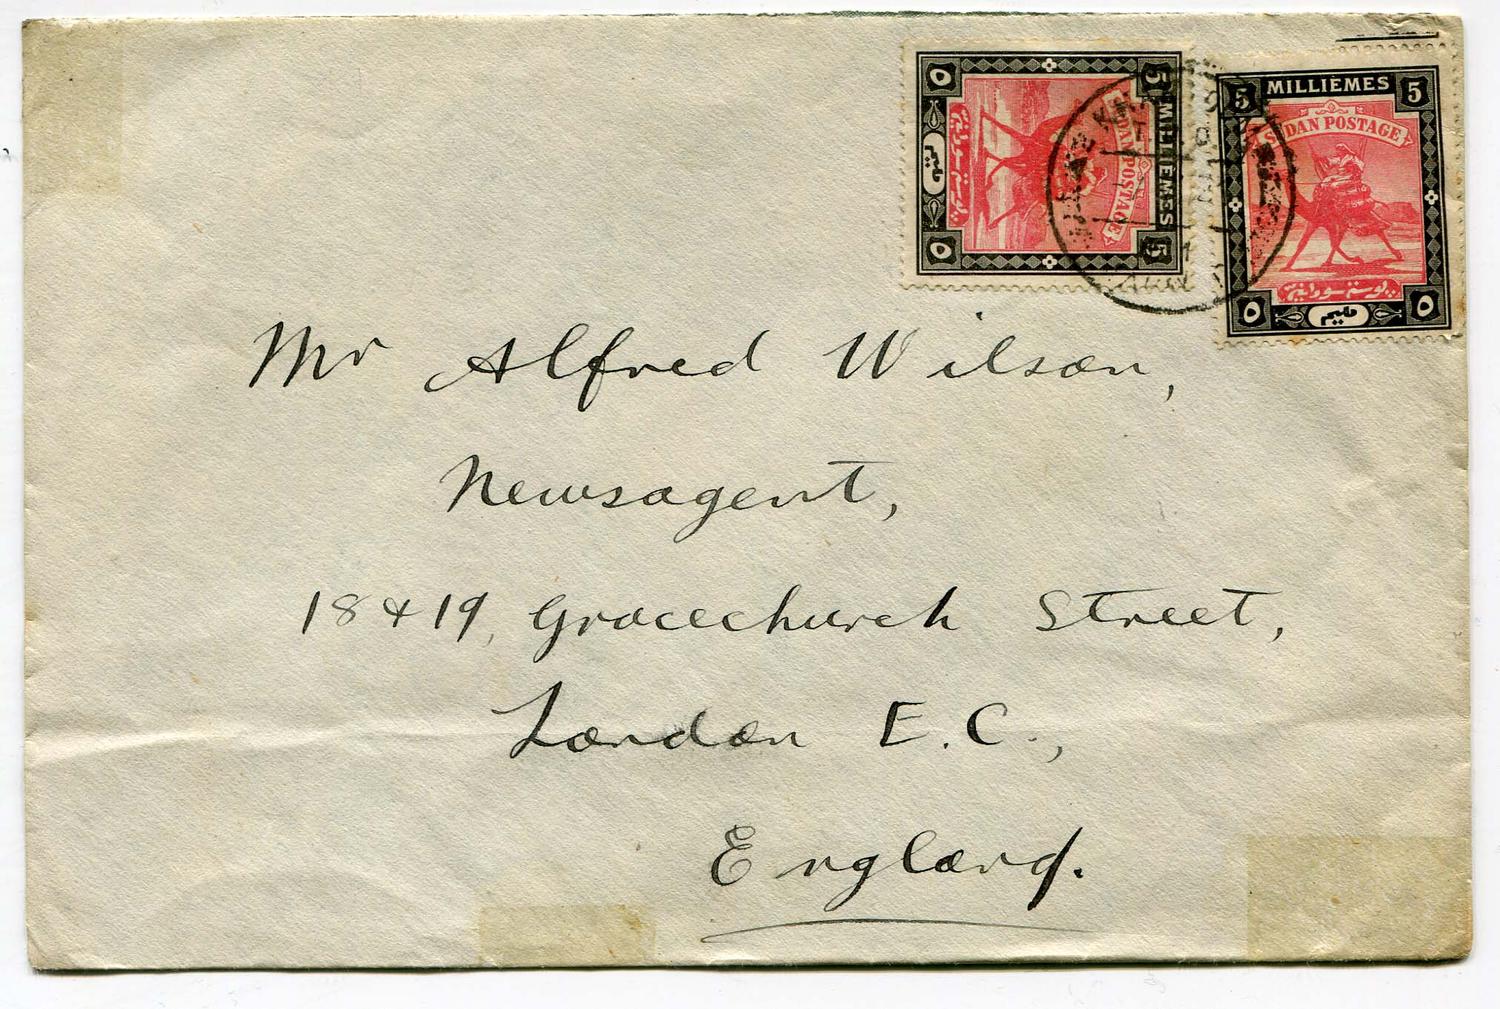 5 MILLIÈMES 5
SUDAN POSTAGE
بوستة سودانية
٥ مليم ٥
5 MILLIEMES 5
SUDAN POSTAGE
بوستة سودانية
٥ مليم ٥
Mr Alfred Wilson,
Newsagent,
18 & 19, Gracechurch Street,
London E.C.,
England.